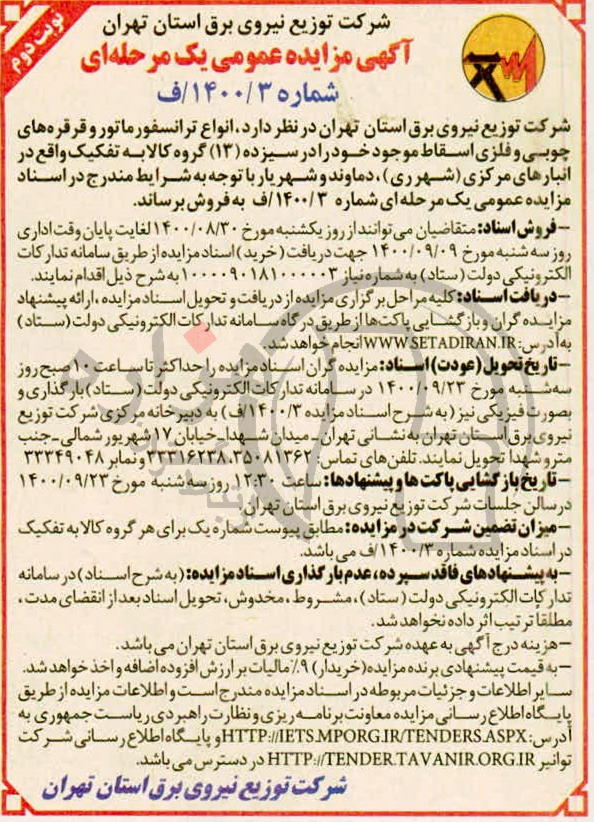 نوبت دوم
شرکت توزیع نیروی برق استان تهران
آگهی مزایده عمومی یک مرحله‌ای
شماره ۱۴۰۰/۳/ف
شرکت توزیع نیروی برق استان تهران در نظر دارد، انواع ترانسفورماتور و قرقره‌های
چوبی و فلزی اسقاط موجود خود را در سیزده (۱۳) گروه کالا به تفکیک واقع در
انبارهای مرکزی (شهرری)، دماوند و شهریار با توجه به شرایط مندرج در اسناد
مزایده عمومی یک مرحله‌ای شماره ۱۴۰۰/۳/ف به فروش برساند.
–فروش اسناد: متقاضیان می‌توانند از روز یکشنبه مورخ ۱۴۰۰/۰۸/۳۰ لغایت پایان وقت اداری
روز سه شنبه مورخ ۱۴۰۰/۰۹/۰۹ جهت دریافت (خرید) اسناد مزایده از طریق سامانه تدارکات
الکترونیکی دولت (ستاد) به شماره نیاز ۱۰۰۰۰۹۰۱۸۱۰۰۰۰۰۳ به شرح ذیل اقدام نمایند.
–دریافت اسناد: کلیه مراحل برگزاری مزایده از دریافت و تحویل اسناد مزایده، ارائه پیشنهاد
مزایده گران و بازگشایی پاکت‌ها از طریق درگاه سامانه تدارکات الکترونیکی دولت (ستاد)
به آدرس: WWW.SETADIRAN.IR انجام خواهد شد.
–تاریخ تحویل (عودت) اسناد: مزایده گران اسناد مزایده را حداکثر تا ساعت ۱۰ صبح روز
سه‌شنبه مورخ ۱۴۰۰/۰۹/۲۳ در سامانه تدارکات الکترونیکی دولت (ستاد) بارگذاری و
بصورت فیزیکی نیز (به شرح اسناد مزایده ۱۴۰۰/۳/ف) به دبیرخانه مرکزی شرکت توزیع
نیروی برق استان تهران به نشانی تهران - میدان شهدا-خیابان ۱۷ شهریور شمالی-جنب
مترو شهدا تحویل نمایند. تلفن‌های تماس: ۳۵۰۸۱۳۶۲، ۳۳۳۱۶۲۳۸ و نمابر ۳۳۳۴۹۰۴۸
–تاریخ بازگشایی پاکت‌ها و پیشنهادها: ساعت ۱۲:۳۰ روز سه شنبه مورخ ۱۴۰۰/۰۹/۲۳
در سالن جلسات شرکت توزیع نیروی برق استان تهران.
–میزان تضمین شرکت در مزایده: مطابق پیوست شماره یک برای هر گروه کالا به تفکیک
در اسناد مزایده شماره ۱۴۰۰/۳/ف می‌باشد.
–به پیشنهادهای فاقد سپرده، عدم بارگذاری اسناد مزایده: (به شرح اسناد) در سامانه
تدارکات الکترونیکی دولت (ستاد)، مشروط، مخدوش، تحویل اسناد بعد از انقضای مدت،
مطلقا ترتیب اثر داده نخواهد شد.
–هزینه درج آگهی به عهده شرکت توزیع نیروی برق استان تهران می‌باشد.
–به قیمت پیشنهادی برنده مزایده (خریدار) ۹٪ مالیات بر ارزش افزوده اضافه و اخذ خواهد شد.
سایر اطلاعات و جزئیات مربوطه در اسناد مزایده مندرج است و اطلاعات مزایده از طریق
پایگاه اطلاع رسانی مزایده معاونت برنامه ریزی و نظارت راهبردی ریاست جمهوری به
آدرس: HTTP://IETS.MPORG.IR/TENDERS.ASPX و پایگاه اطلاع رسانی شرکت
توانیر HTTP://TENDER.TAVANIR.ORG.IR در دسترس می‌باشد.
شرکت توزیع نیروی برق استان تهران